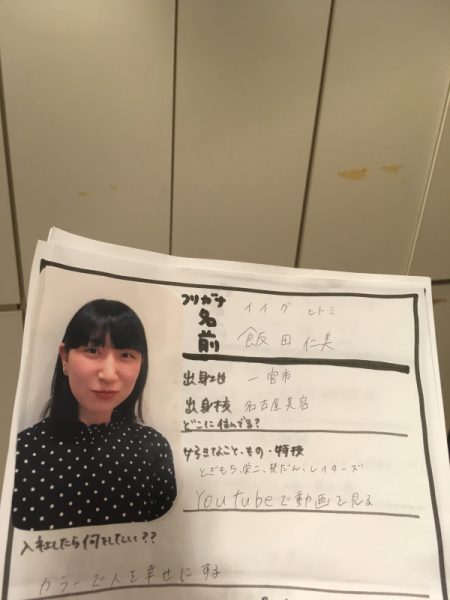 フリガナ イイダ ヒトミ
名前 飯田 仁美
出身地 一宮市
出身校 名古屋美容
どこに住んでる?
好きなこと、もの・特技
Youtubeで動画を見る
入社したら何をしたい??
カラーで人を幸せにする